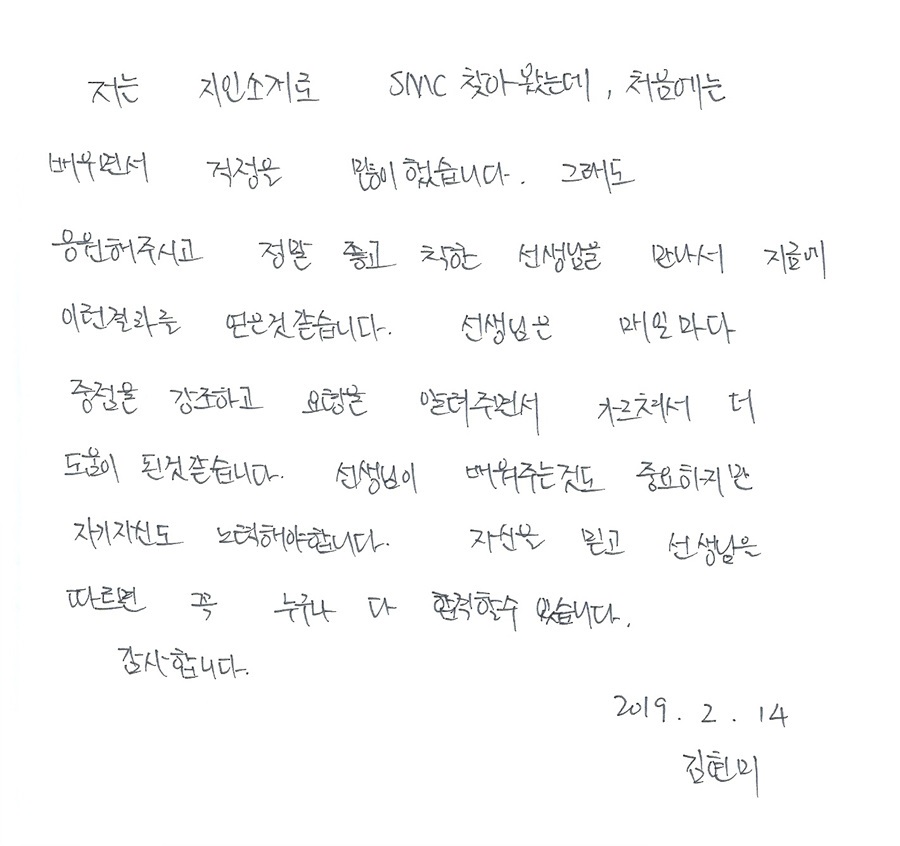 저는 지인소개로 SMC 찾아왔는데, 처음에는
배우면서 걱정을 많이 했습니다. 그래도
응원해주시고 정말 좋고 착한 선생님을 만나서 지금에
이런결과를 얻은것같습니다. 선생님은 매일마다
중점을 강조하고 요령을 알려주면서 가르쳐서 더
도움이 된것같습니다. 선생님이 배워주는것도 중요하지만
자기자신도 노력해야합니다. 자신을 믿고 선생님을
따르면 꼭 누구나 다 합격할수 있습니다.
감사합니다.
2019. 2. 14
김현미